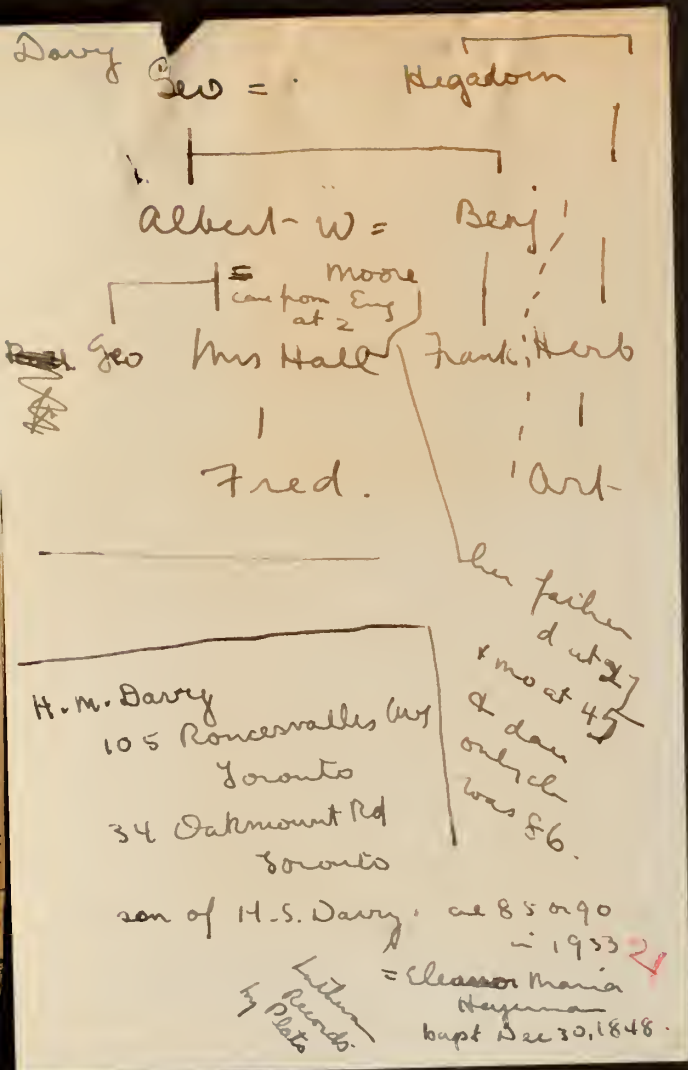 Davy
Geo = Hegadorn
Albert W = Benj
= Moore
came from Eng
at 2
Geo Mrs Hall Frank Herb
Fred. Art
her father
d at 27
& mo at 45
& dau
only ch
was 86.
H. M. Davy
105 Roncesvalles Ave
Toronto
34 Oakmount Rd
Toronto
son of H. S. Davy. ae 85 or 90
in 1933
= Eleanor Maria
bapt Dec 30, 1848.
Lutheran
Records
by Plato